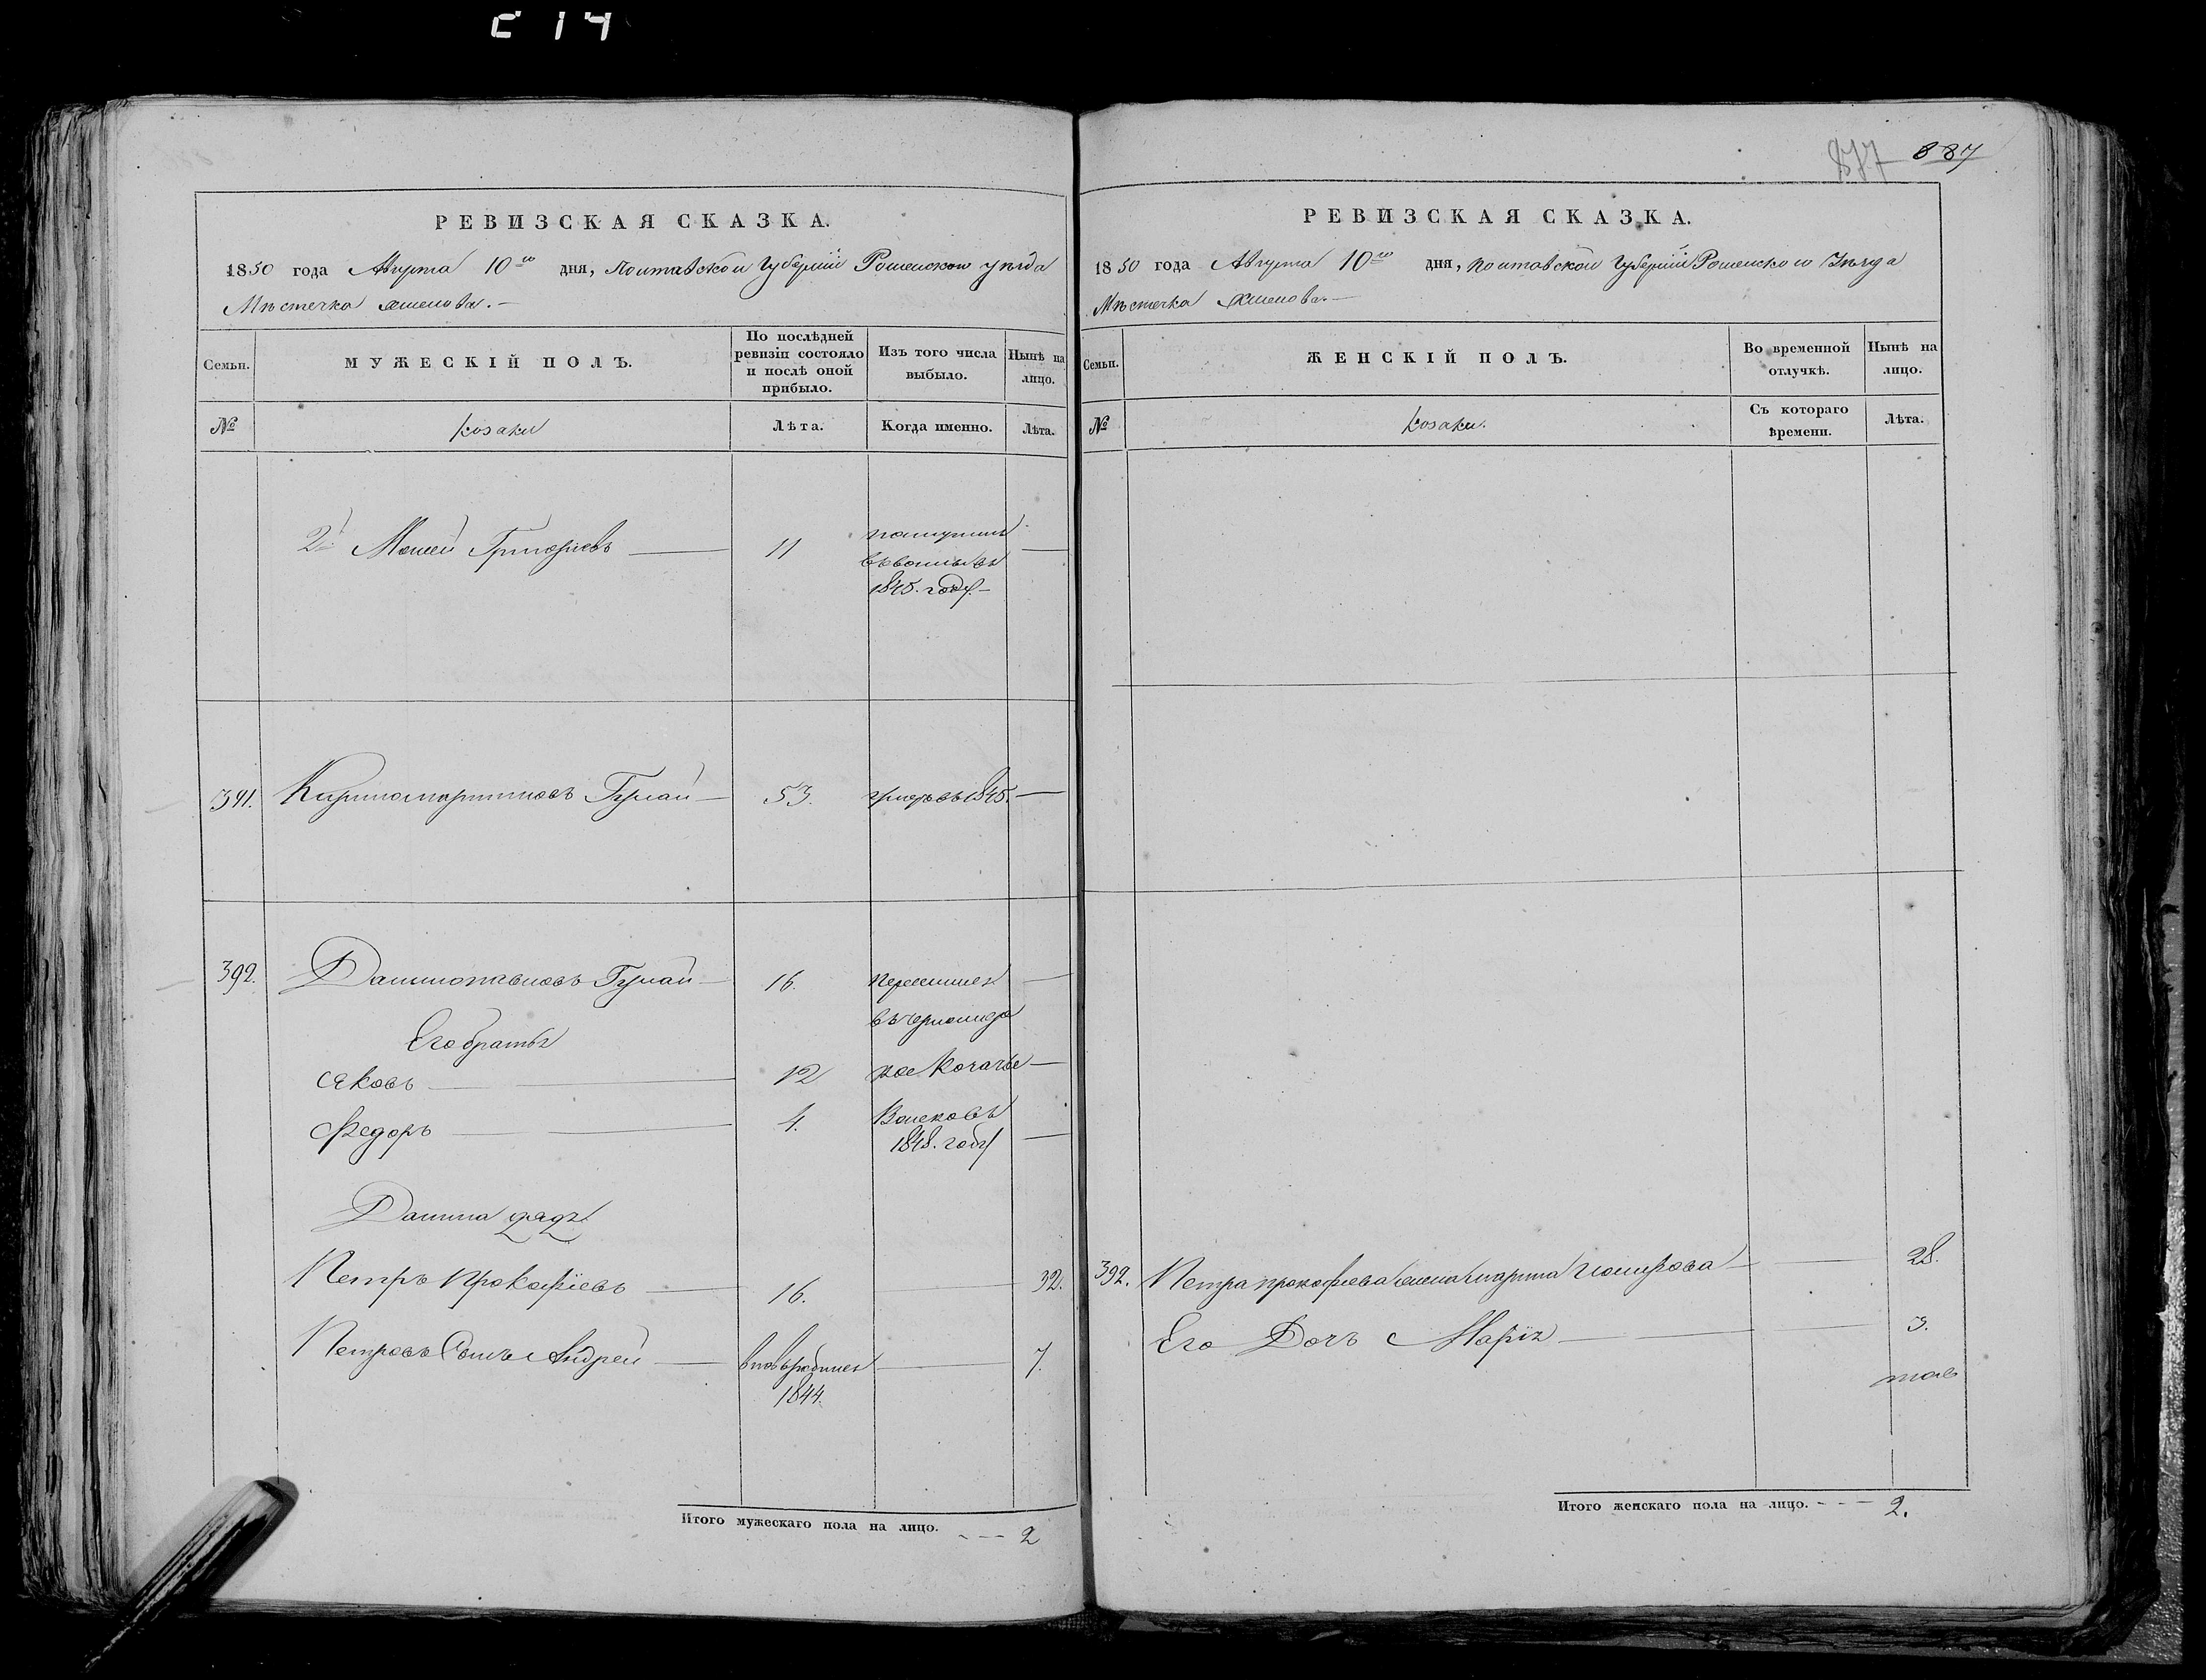 С 14
877 887
РЕВИЗСКАЯ СКАЗКА.
1850 года Августа 10го дня, Полтавской Губерніи Роменского уѣзда
Мѣстечка
Семьи.
МУЖЕСКІЙ ПОЛЪ.
По послѣдней ревизіи состояло и послѣ оной прибыло.
Изъ того числа выбыло.
Нынѣ на лицо.
№
козаки
Лѣта.
Когда именно.
Лѣта.
2й Мосей Григорьевъ — 11
поступилъ —
1845. году.—
391. Гулай — 53. умеръ въ 1845. —
392. Данило Павловъ Гулай — 16. Переселился —
въ Черномор
Его братья
Яковъ — 12 ское Козачье —
Федоръ — 4. Войско въ
1848. году —
Данила дядя
Петръ Прокофіевъ — 16. — 32.
Петровъ Сынъ Андрей — вновь родился — 7.
1844.
Итого мужескаго пола на лицо. - - - 2
РЕВИЗСКАЯ СКАЗКА.
1850 года Августа 10го дня, Полтавской Губерніи Роменского Уѣзда
Мѣстечка
Семьи.
ЖЕНСКІЙ ПОЛЪ.
Во временной отлучкѣ.
Нынѣ на лицо.
№
козаки.
Съ котораго времени.
Лѣта.
392. Петра Прокофіева жена Марина — 28.
Его Дочь Марія — 3.
Итого женскаго пола на лицо. - - - 2.